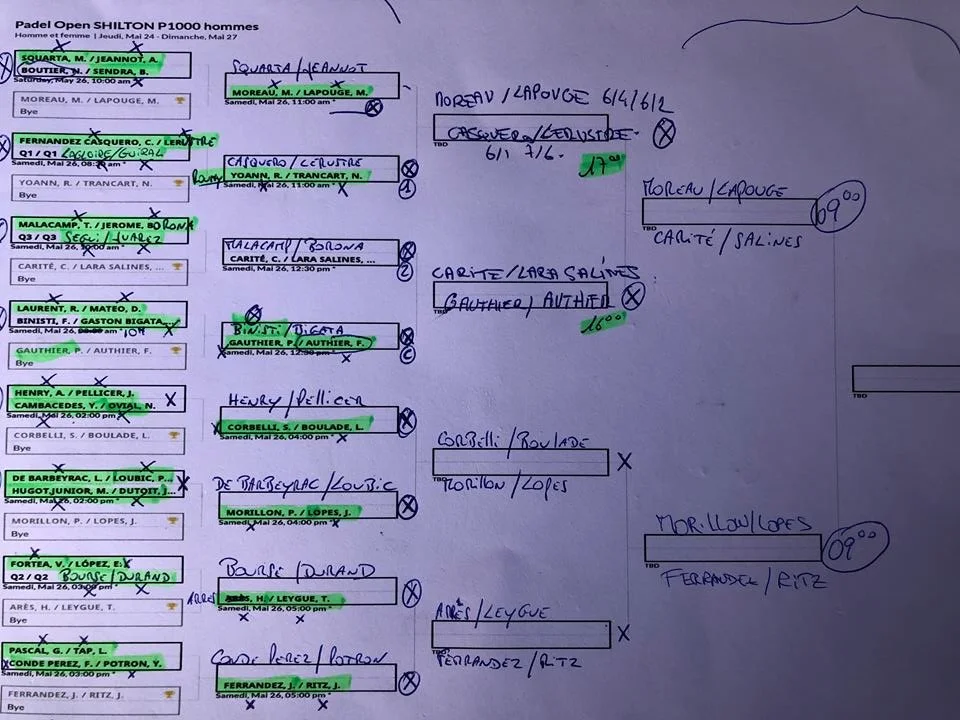 Padel Open SHILTON P1000 hommes
Homme et femme | Jeudi, Mai 24 - Dimanche, Mai 27
SQUARTA, M. / JEANNOT, A.
BOUTIER, N. / SENDRA, B.
Saturday, May 26, 10:00 am
MOREAU, M. / LAPOUGE, M.
Bye
FERNANDEZ CASQUERO, C. / LERUSTRE
Q1 / Q1
Samedi, Mai 26,
YOANN, R. / TRANCART, N.
Bye
MALACAMP, T. / JEROME, BORONA
Q3 / Q3 SEGUI / JUAREZ
Samedi, Mai 26, 10:00 am *
CARITÉ, C. / LARA SALINES, ...
Bye
LAURENT, R. / MATEO, D.
BINISTI, F. / GASTON BIGATA...
Samedi, Mai 26, am * 10H
GAUTHIER, P. / AUTHIER, F.
Bye
HENRY, A. / PELLICER, J.
CAMBACEDES, Y. / OVIAL, N.
Samedi, Mai 26, 02:00 pm
CORBELLI, S. / BOULADE, L.
Bye
DE BARBEYRAC, L. / LOUBIC, P...
HUGOT JUNIOR, M. / DUTOIT, J...
Samedi, Mai 26, 02:00 pm *
MORILLON, P. / LOPES, J.
Bye
FORTEA, V. / LÓPEZ, E.
Q2 / Q2 BOURSE / DURAND
Samedi, Mai 26, 03:00 pm
ARÈS, H. / LEYGUE, T.
Bye
PASCAL, G. / TAP, L.
CONDE PEREZ, F. / POTRON, Y.
Samedi, Mai 26, 03:00 pm *
FERRANDEZ, J. / RITZ, J.
Bye
SQUARTA / JEANNOT
MOREAU, M. / LAPOUGE, M.
Samedi, Mai 26, 11:00 am *
CASQUERO / LERUSTRE
YOANN, R. / TRANCART, N.
Samedi, Mai 26, 11:00 am *
1
MALACAMP / BORONA
CARITÉ, C. / LARA SALINES, ...
Samedi, Mai 26, 12:30 pm *
2
BINISTI / BIGATA
GAUTHIER, P. / AUTHIER, F.
Samedi, Mai 26, 12:30 pm *
C
HENRY / Pellicer
CORBELLI, S. / BOULADE, L.
Samedi, Mai 26, 04:00 pm *
DE BARBEYRAC / LOUBIC
MORILLON, P. / LOPES, J.
Samedi, Mai 26, 04:00 pm *
BOURSE / DURAND
ARRES ARÈS, H. / LEYGUE, T.
Samedi, Mai 26, 05:00 pm *
CONDE PEREZ / POTRON
FERRANDEZ, J. / RITZ, J.
Samedi, Mai 26, 05:00 pm *
MOREAU / LAPOUGE 6/4/6/2
CASQUERO / LERUSTRE
TBD
6/1 7/6
17 00
CARITE / LARA SALINES
GAUTHIER / AUTHIER
TBD
16 00
CORBELLI / BOULADE
TBD
MORILLON / LOPES
ARÈS / LEYGUE
TBD
FERRANDEZ / RITZ
MOREAU / LAPOUGE
09 00
TBD
CARITÉ / SALINES
MORILLON / LOPES
09 00
TBD
FERRANDEZ / RITZ
TBD